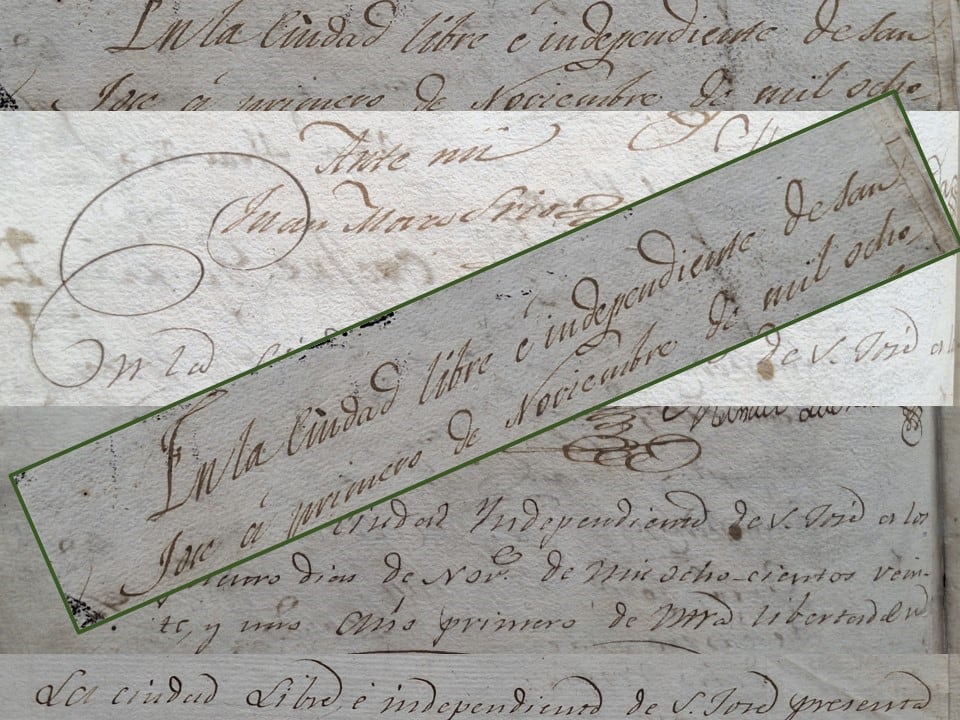 En la Ciudad libre e independiente de San
Jose á primero de Noviembre de mil ocho
Ante mi
Juan Mora
En la
de S. José en los
En la Ciudad libre e independiente de San
Jose á primero de Noviembre de mil ocho
Ciudad Independiente de S. José a los
dias de Nove. de mil ocho-cientos vein-
te, y uno Año primero de Ntra libertad
La ciudad Libre é independiente de S. José presenta